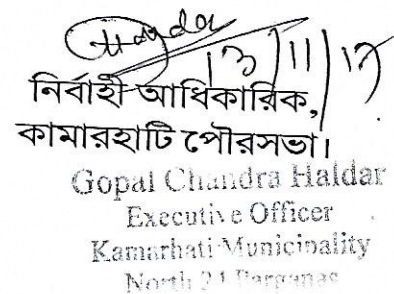 13/11/17
নির্বাহী আধিকারিক,
কামারহাটি পৌরসভা।
Gopal Chandra Haldar
Executive Officer
Kamarhati Municipality
North 24 Parganas